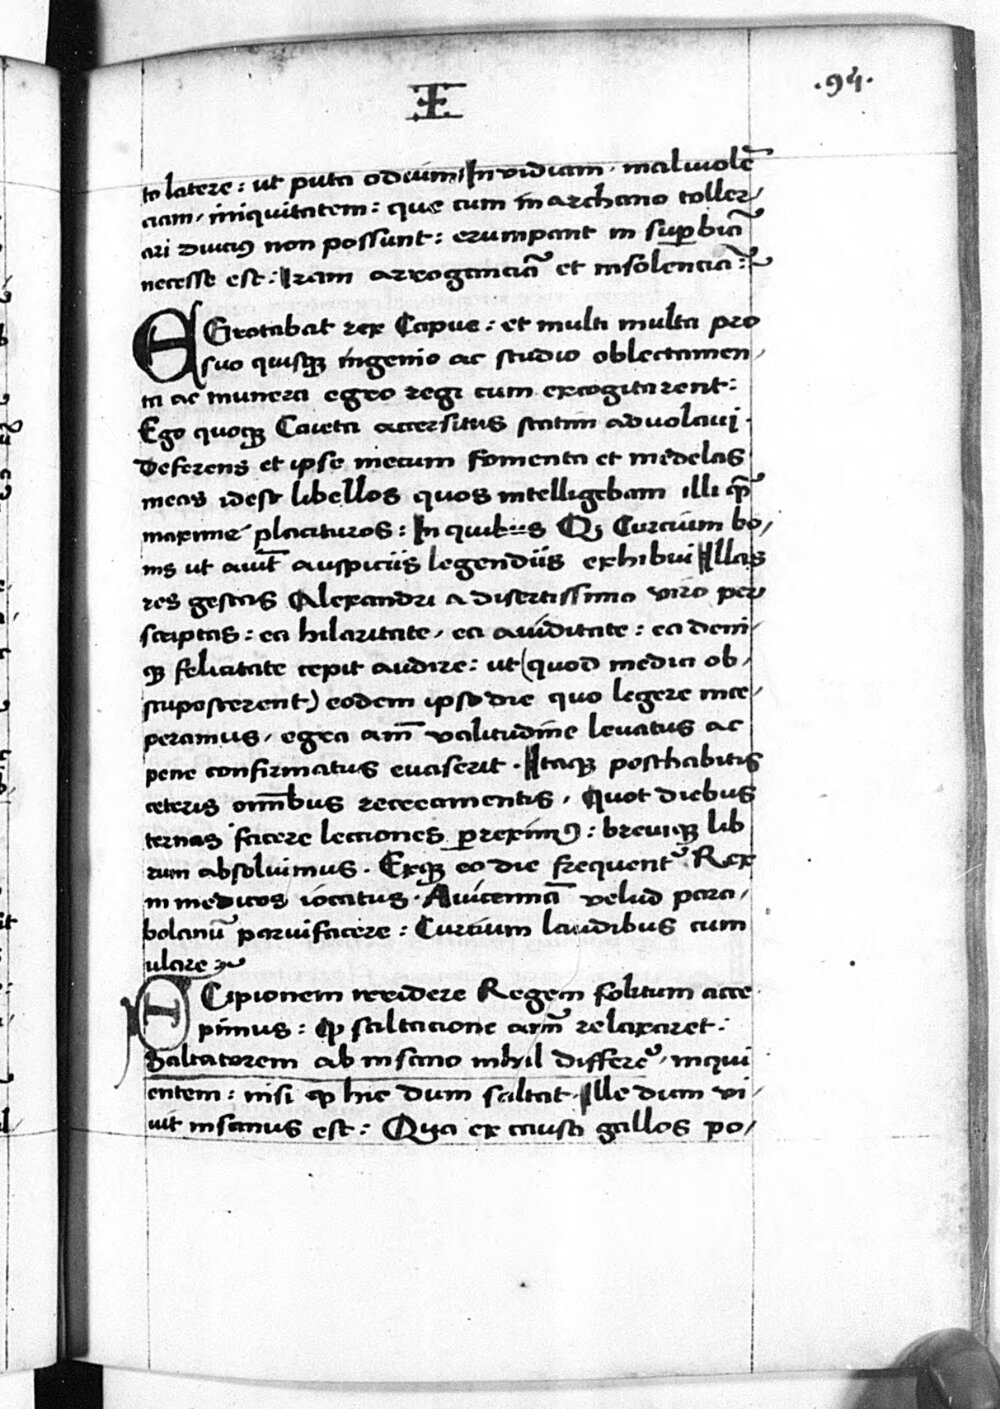 E
.94.
to latere: ut puta odium, Invidiam, malivolẽ
ciam, iniquitatem: que cum in archano toller/
ari diucius non possunt: erumpant in sup̱biã
necesse est: Iram arroganciã et insolenciã:~
EGrotabat rex Capue: et multi multa pro
suo quisqꝫ ingenio ac studio oblectamen/
ta ac munera egro regi cum excogitarent:
Ego quoqꝫ Caieta accersitus statim advolavi.
Deferens et ipse mecum fomenta et medelas
meas idest libellos quos intelligebam illi qᷓ
maxime placituros: In quibus Q, Curcium bo/
nis ut aiũt auspiciis legendiis exhibui Illas
res gestas Alexandri a disertissimo viro per
scriptas: ea hilaritate, ea aviditate: ea deni/
qꝫ felicitate cepit audire: ut (quod medici ob/
stuposcerent) eodem ipso die quo legere ince/
peramus, egra aĩ valitudine levatus ac
pene confirmatus evaserit. Itaqꝫ posthabitis
ceteris omĩbus recreamentis, Quot diebus
ternas facere lecciones perreximꝰ: breviqꝫ lib
rum absolvimus. Exqꝫ eo die frequentᷣ Rex
in medicos iocatus. Avicennã velud para/
bolanũ parvifacere: Curcium laudibus cum
ulare:~
SCipionem irridere Regem solitum acce
pimus: qꝫ saltacione aĩm relaxaret:
Saltatorem ab insano nihil differeᷣ, inqui
entem: nisi qꝫ hic dum saltat. Ille dum vi/
vit insanus est: Qua ex causa gallos po/